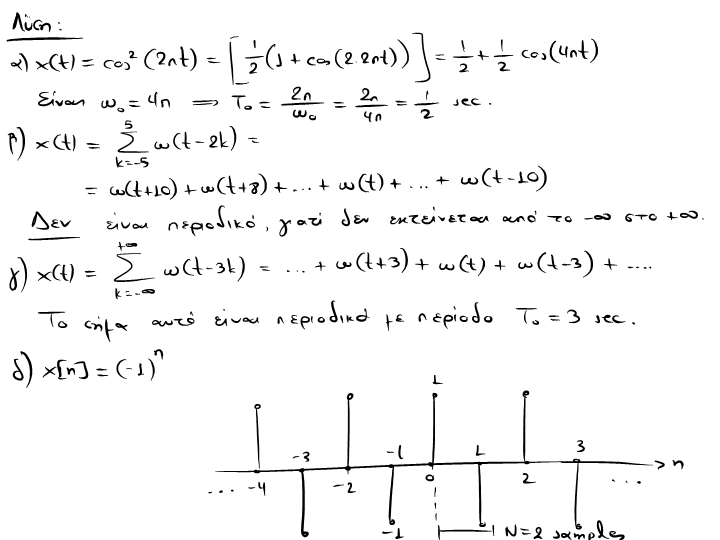 Λύση:
α) x(t) = cos²(2πt) = [1/2(1 + cos(2·2πt))] = 1/2 + 1/2 cos(4πt)
Είναι ω₀ = 4π ⟹ T₀ = 2π/ω₀ = 2π/4π = 1/2 sec.
β) x(t) = Σ_{k=-5}^{5} ω(t-2k) =
= ω(t+10) + ω(t+8) + ... + ω(t) + ... + ω(t-10)
Δεν είναι περιοδικό, γιατί δεν εκτείνεται από το -∞ στο +∞.
γ) x(t) = Σ_{k=-∞}^{+∞} ω(t-3k) = ... + ω(t+3) + ω(t) + ω(t-3) + ....
Το σήμα αυτό είναι περιοδικό με περίοδο T₀ = 3 sec.
δ) x[n] = (-1)ⁿ
1
-3 -1 1 3
... -4 -2 0 2 ... n
-1 N=2 samples